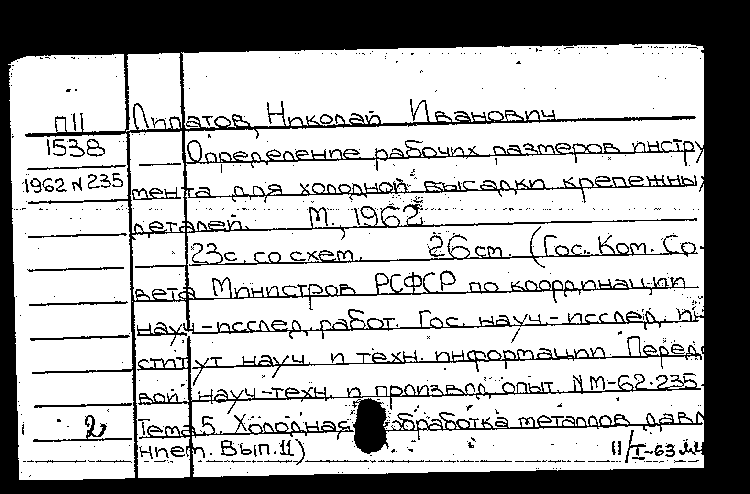 П11 Липатов, Николай Иванович
1538 Определение рабочих размеров инстру
1962 N 235 мента для холодной высадки крепежных
деталей. М., 1962
23с. со схем. 26 см. (Гос. Ком. Со-
вета Министров РСФСР по координации
науч.-исслед. работ. Гос. науч.-исслед. ин-
ститут науч. и техн. информации Передо
вой науч-техн. и производ. опыт. N М-62-235.
2 Тема 5. Холодная обработка металлов давл
нием. Вып. 11) 11/I-63 МЧ